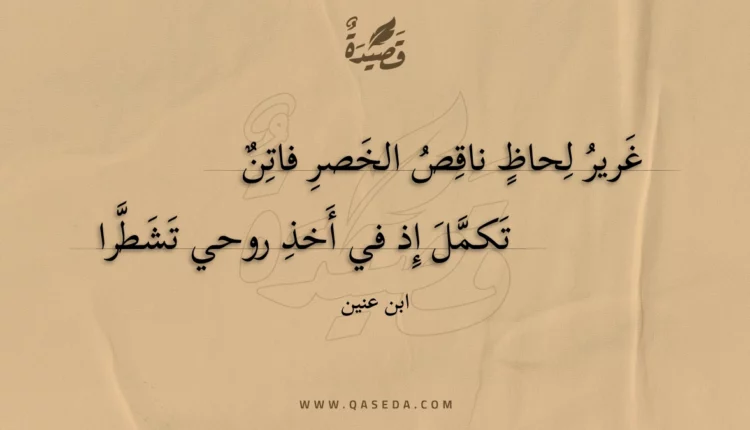 قَصِيْدَةٌ
غَريرُ لِحاظٍ ناقِصُ الخَصرِ فاتِنٌ
تَكمَّلَ إِذ في أَخذِ روحي تَشَطَّرا
ابن عنين
WWW.QASEDA.COM